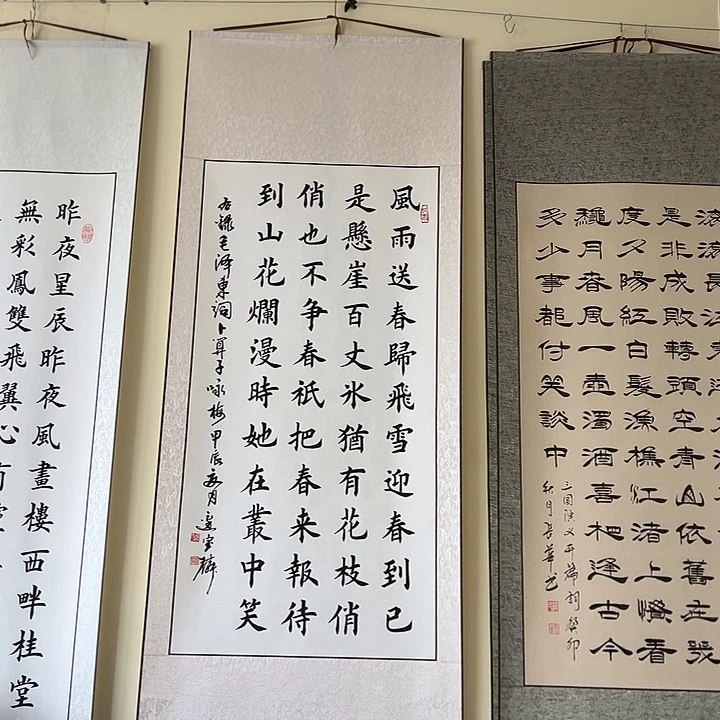 滚滚長江
是非成敗轉頭空青山依舊在幾
度夕陽紅白髮漁樵江渚上慣看
穐月春風一壺濁酒喜相逢古今
多少事都付笑談中
三国演义开篇詞癸卯
秋月長華书
風雨送春歸飛雪迎春到已
是懸崖百丈冰猶有花枝俏
俏也不争春衹把春来報待
到山花爛漫時她在叢中笑
右録毛泽東詞卜算子咏梅甲辰
昨夜星辰昨夜風畫樓西畔桂堂
無彩鳳雙飛翼心有